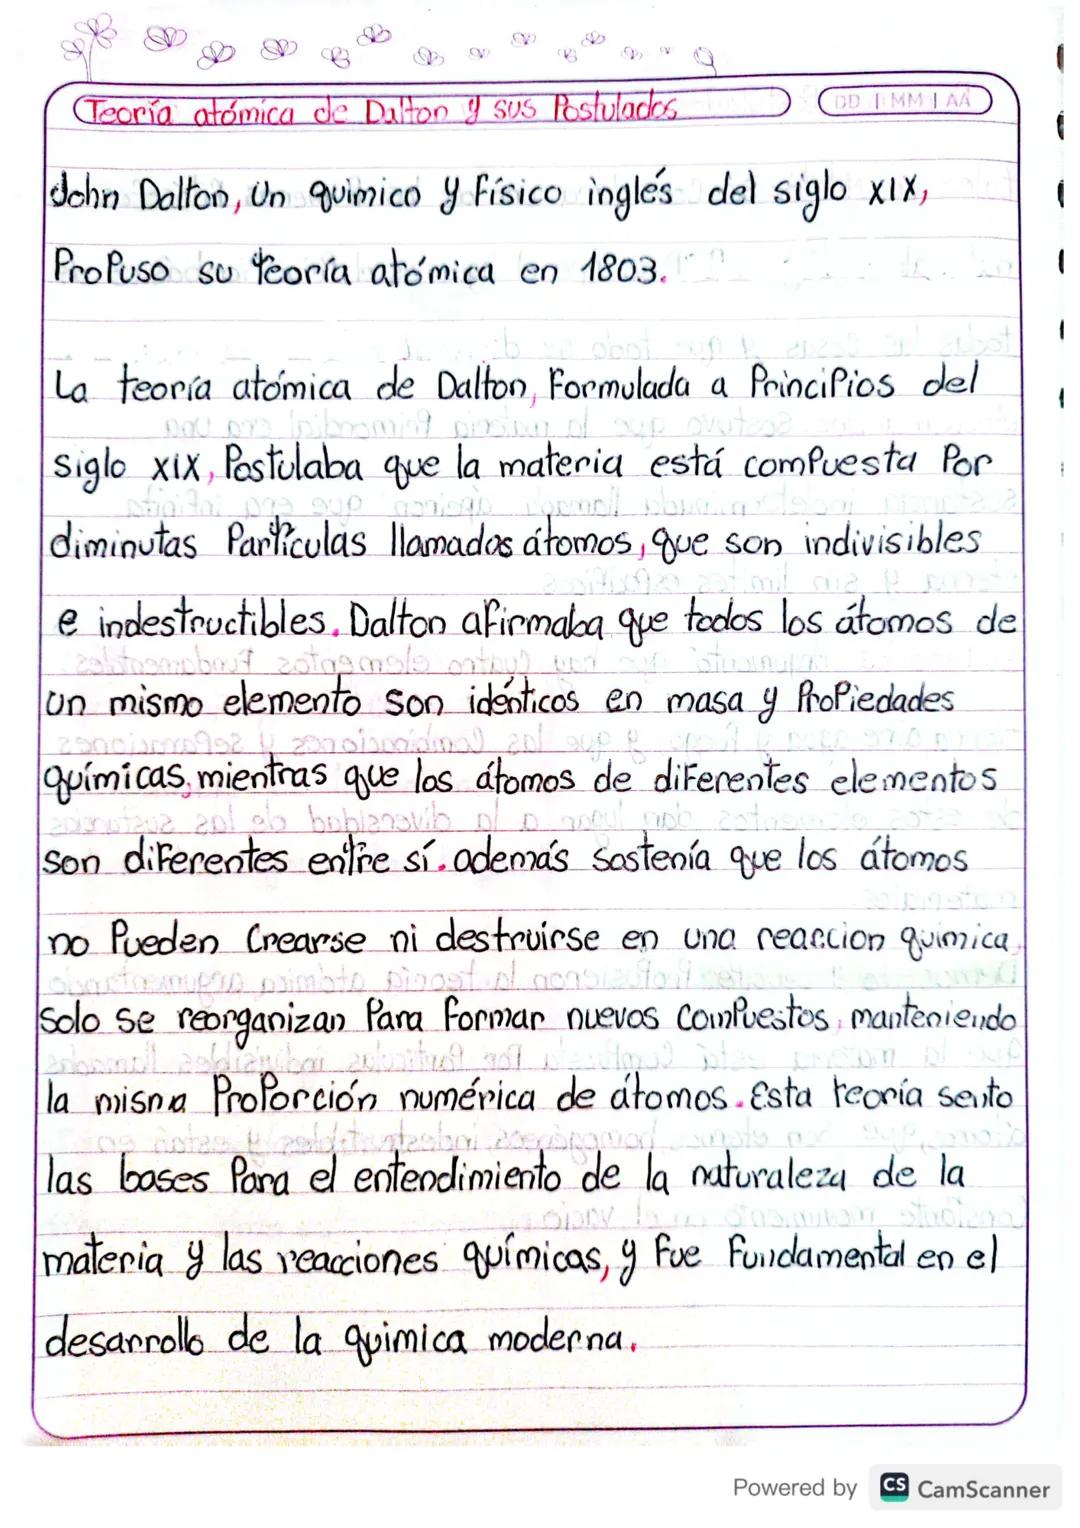 Teoría atómica de Dalton y sus Postulados
DD | MM | AA
John Dalton, Un quimico y Físico inglés del siglo XIX,
Propuso su teoría atómica en 1803.
La teoría atómica de Dalton, Formulada a Principios del
siglo XIX, Postulaba que la materia está compuesta Por
diminutas Partículas llamados átomos, que son indivisibles
e indestructibles. Dalton afirmaba que todos los átomos de
un mismo elemento son idénticos en masa y Propiedades
químicas, mientras que los átomos de diferentes elementos
son diferentes entre sí. además sostenía que los átomos
no Pueden Crearse ni destruirse en una reaccion quimica,
Solo se reorganizan Para formar nuevos compuestos, manteniendo
la misma Proporción numérica de átomos. Esta teoría sento
las bases Para el entendimiento de la naturaleza de la
materia y las reacciones químicas, y Fue Fundamental en el
desarrollo de la quimica moderna.
Powered by CS CamScanner